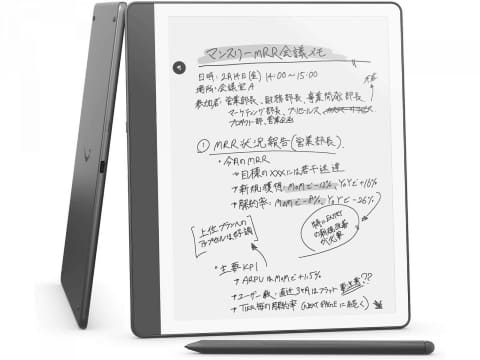 マンスリーMRR会議メモ
日時：2月14日(金) 14:00〜15:00
場所：会議室A
参加者：営業部長、財務部長、事業開発部長、
マーケティング部長、プリセールス、
プロダクト部、営業企画
① MRR状況報告(営業部長)
・今月のMRR
→目標のXXXには若干未達
→新規獲得：MoMで-12%、YoYで+16%
→解約率：MoMで-8%、YoYで-26%
[上位プランへの
アップセルは好調]
特に
の新規
が
・主要KPI
→ARPUはMoMで+1.5%
→ユーザー数：直近3ヶ月はフラット ??
→Tier毎の解約率(NEXT PAGEに続く)